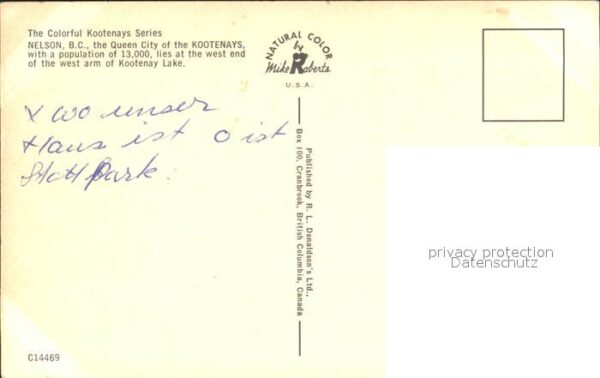 The Colorful Kootenays Series
NELSON, B.C., the Queen City of the KOOTENAYS,
with a population of 13,000, lies at the west end
of the west arm of Kootenay Lake.
NATURAL COLOR
by
Mike Roberts
U.S.A.
x wo unser
Haus ist o ist
Stattpark.
Published by R. L. Donaldson's Ltd.,
Box 100, Cranbrook, British Columbia, Canada
privacy protection
Datenschutz
C14469